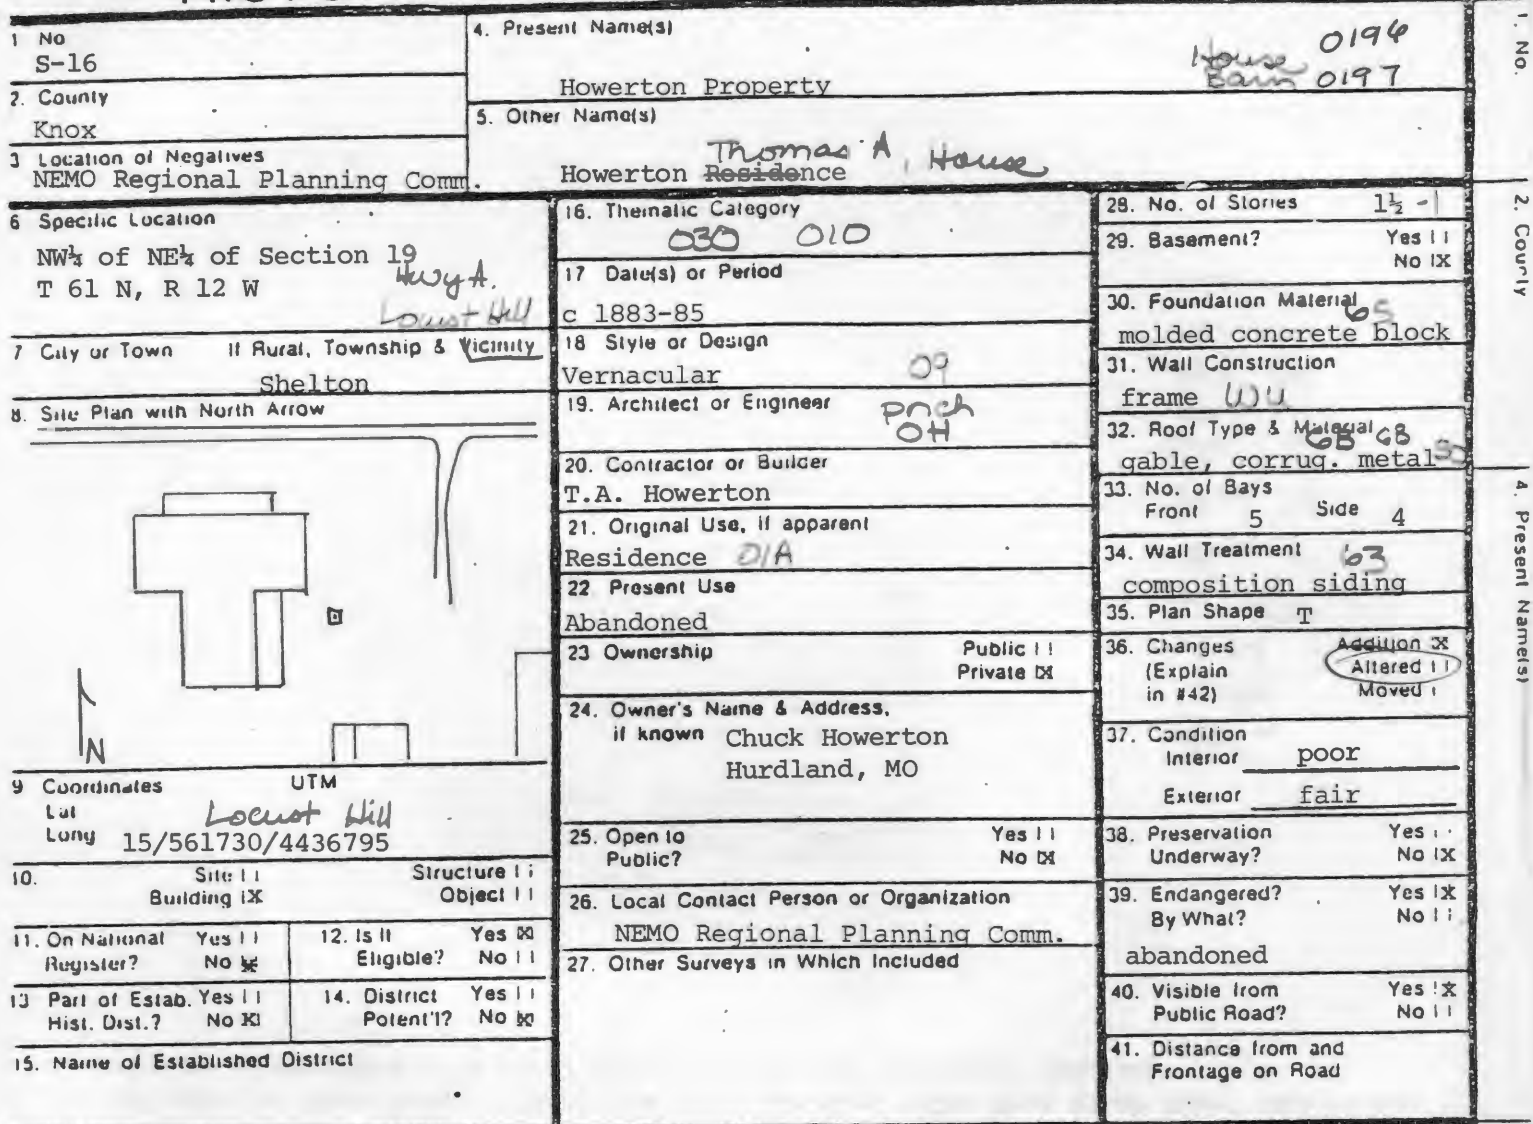 1 No
S-16
2. County
Knox
3 Location of Negatives
NEMO Regional Planning Comm.
4. Present Name(s)
Howerton Property
House 0196
Barn 0197
5. Other Name(s)
Thomas A. House
Howerton Residence
6 Specific Location
NW¼ of NE¼ of Section 19
T 61 N, R 12 W
Hwy A.
Locust Hill
7 City or Town If Rural, Township & Vicinity
Shelton
8. Site Plan with North Arrow
N
9 Coordinates UTM
Lat
Long
Locust Hill
15/561730/4436795
10. Site [ ] Structure [ ]
Building [X Object [ ]
11. On National Register? Yes [ ] No [X]
12. Is It Eligible? Yes [X] No [ ]
13 Part of Estab. Hist. Dist.? Yes [ ] No [X]
14. District Potent'l? Yes [ ] No [X]
15. Name of Established District
16. Thematic Category
030 010
17 Date(s) or Period
c 1883-85
18 Style or Design
Vernacular 09
19. Architect or Engineer
prch
OH
20. Contractor or Builder
T.A. Howerton
21. Original Use, if apparent
Residence 01A
22 Present Use
Abandoned
23 Ownership Public [ ]
Private [X]
24. Owner's Name & Address,
if known Chuck Howerton
Hurdland, MO
25. Open to Yes [ ]
Public? No [X]
26. Local Contact Person or Organization
NEMO Regional Planning Comm.
27. Other Surveys in Which Included
28. No. of Stories 1½ -1
29. Basement? Yes [ ]
No [X
30. Foundation Material 65
molded concrete block
31. Wall Construction
frame WU
32. Roof Type & Material GB
gable, corrug. metal
33. No. of Bays
Front 5 Side 4
34. Wall Treatment 63
composition siding
35. Plan Shape T
36. Changes Addition X
(Explain Altered [ ]
in #42) Moved [
37. Condition
Interior poor
Exterior fair
38. Preservation Yes
Underway? No [X
39. Endangered? Yes [X
By What? No [ ]
abandoned
40. Visible from Yes [X
Public Road? No [ ]
41. Distance from and
Frontage on Road
1. No.
2. County
4. Present Name(s)